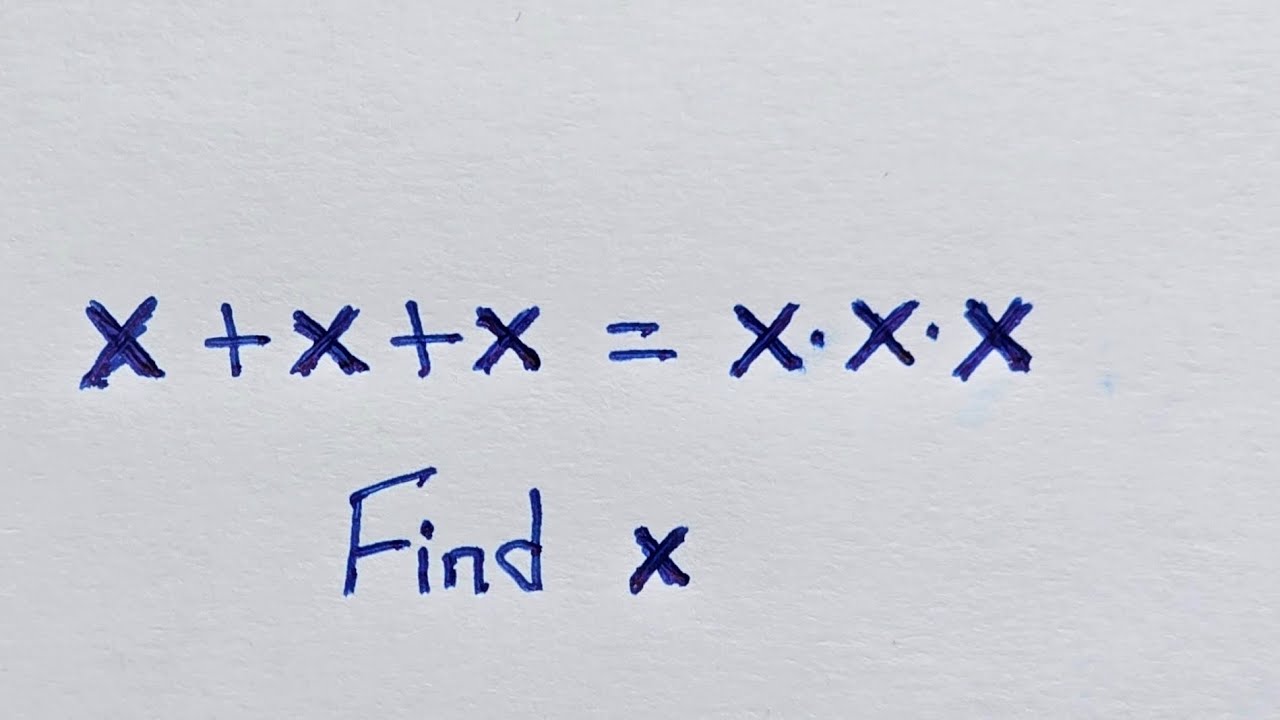 x + x + x = x · x · x
Find x